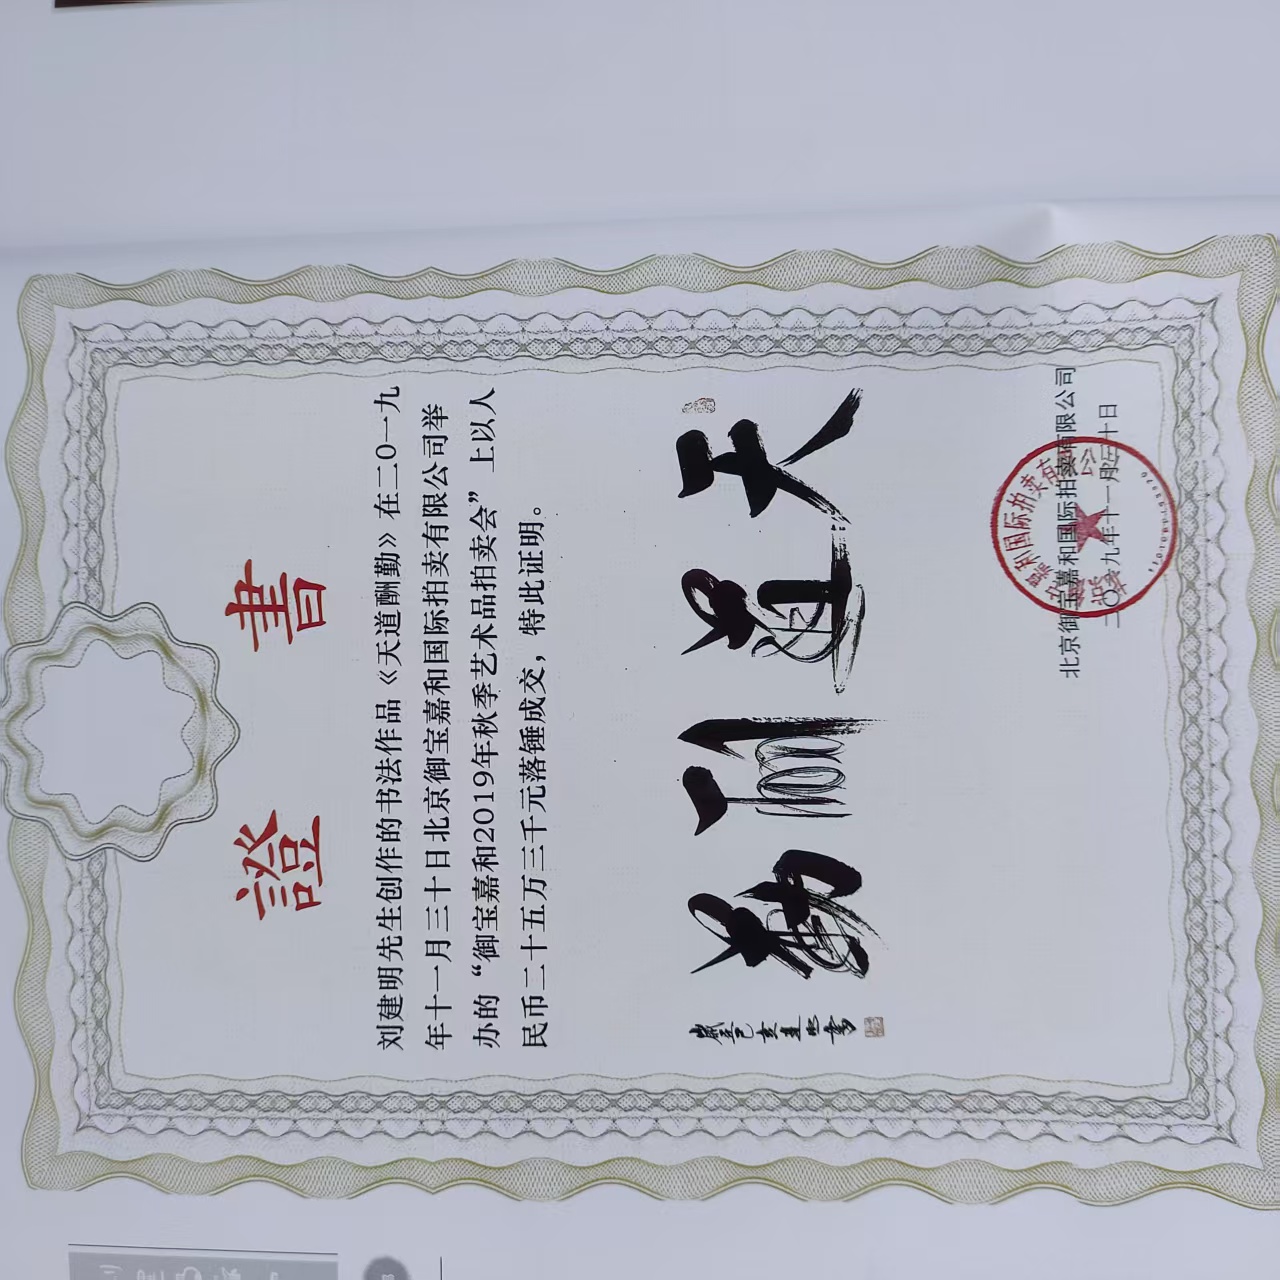 證書
刘建明先生创作的书法作品《天道酬勤》在二0一九
年十一月三十日北京御宝嘉和国际拍卖有限公司举
办的“御宝嘉和2019年秋季艺术品拍卖会”上以人
民币二十五万三千元落锤成交，特此证明。
天道酬勤
歲在己亥建明書
北京御宝嘉和国际拍卖有限公司
二〇一九年十一月三十日